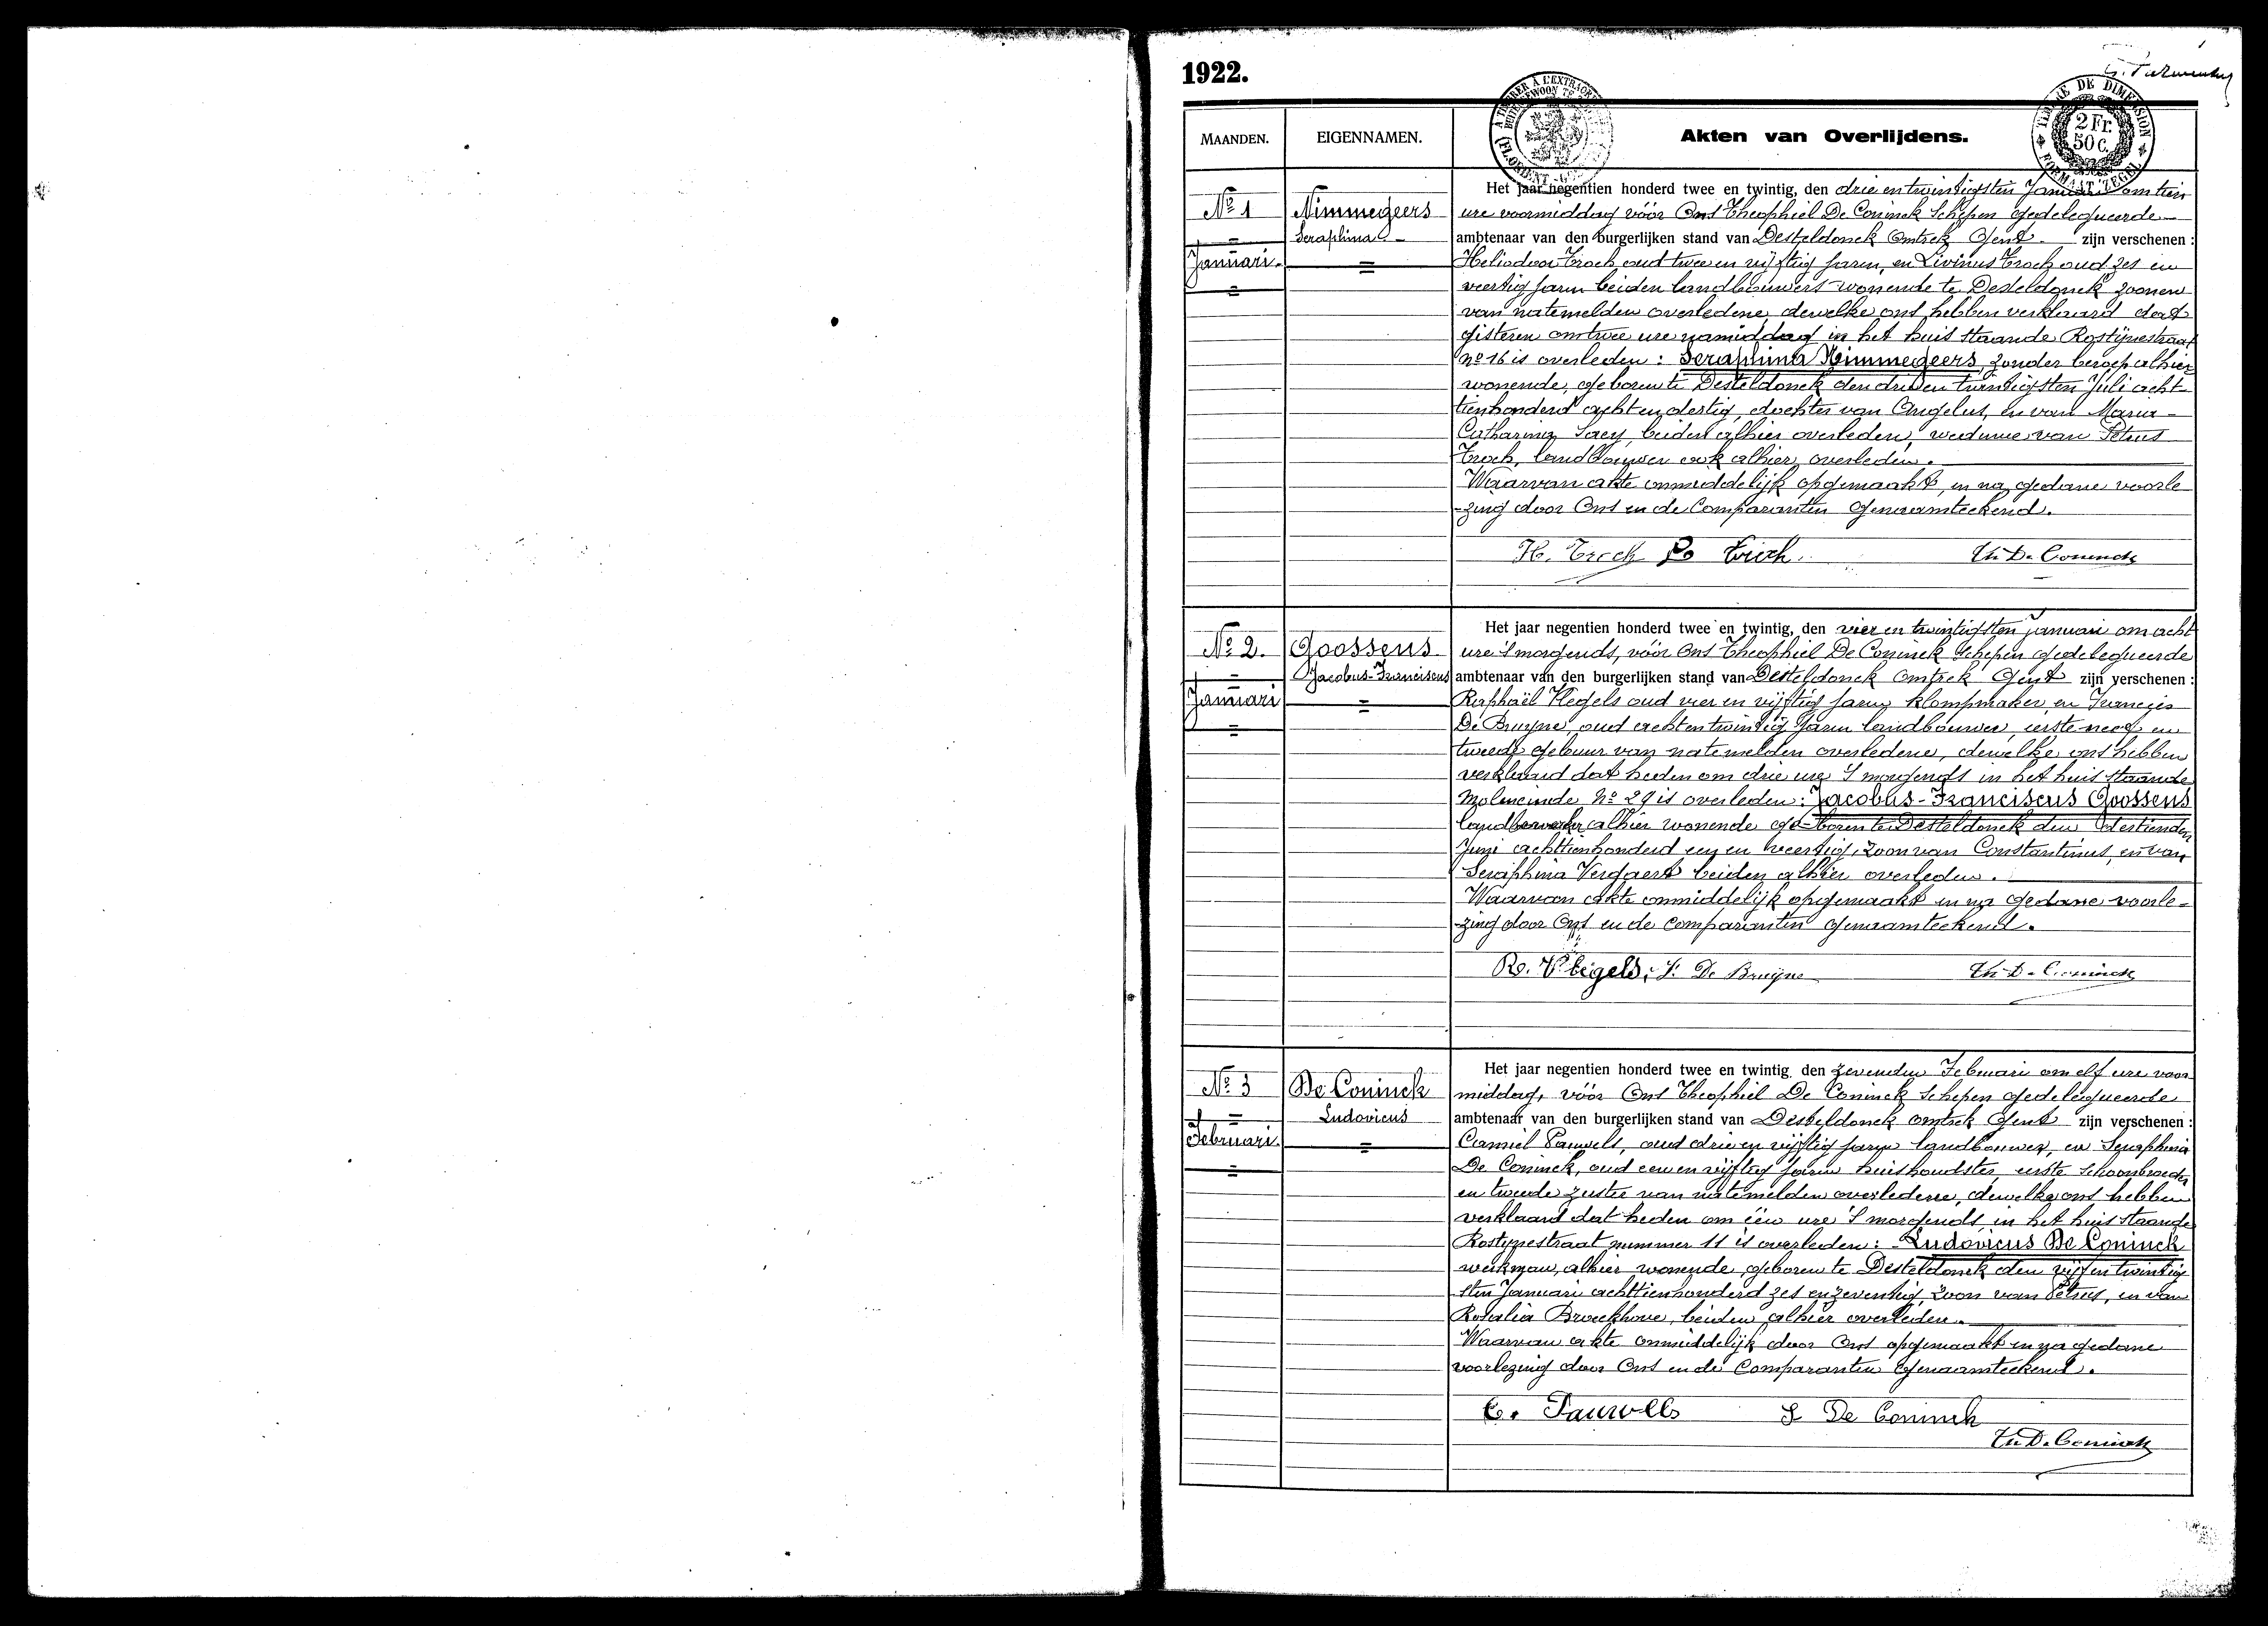 1922.
MAANDEN.
EIGENNAMEN.
Akten van Overlijdens.
TIMBRE DE DIMENSION
2 Fr.
50 c.
FORMAAT ZEGEL
Nº 1
Januari.
Nimmegeers
Seraphina
Het jaar negentien honderd twee en twintig, den drie en twintigsten Januari om tien
ure voormiddag vóór Ons Theophiel De Coninck Schepen gedelegueerde
ambtenaar van den burgerlijken stand van Desteldonck Omtrek Gent zijn verschenen :
Heliodoor Troch oud twee en vijftig jaren, en Livinus Troch oud zes en
veertig jaren beiden landbouwers wonende te Desteldonck zoonen
van natemelden overledene, dewelke ons hebben verklaard dat
gisteren om twee ure namiddag in het huis staande Rostijnestraat
nº 16 is overleden : Seraphina Nimmegeers, zonder beroep alhier
wonende, geboren te Desteldonck den drie en twintigsten Juli acht-
tienhonderd acht en dertig, dochter van Angelus, en van Maria-
Catharina Saey, beiden alhier overleden, weduwe van Petrus
Troch, landbouwer ook alhier overleden.
Waarvan akte onmiddelijk opgemaakt, en na gedane voorle
-zing door Ons en de Comparanten genaamteekend.
H. Troch Troch Th. De Coninck
Nº 2.
Januari
Goossens
Jacobus-Franciscus
Het jaar negentien honderd twee en twintig, den vier en twintigsten Januari om acht
ure 's morgends, vóór Ons Theophiel De Coninck Schepen gedelegueerde
ambtenaar van den burgerlijken stand van Desteldonck Omtrek Gent zijn verschenen :
Raphaël Vlegels oud vier en vijftig jaren klompmaker, en Francies
De Bruyne, oud acht en twintig jaren landbouwer, eerste neef en
tweede gebuur van natemelden overledene, dewelke ons hebben
verklaard dat heden om drie ure 's morgends in het huis staande
Moleneinde Nº 29 is overleden : Jacobus-Franciscus Goossens
alhier wonende ge-boren te Desteldonck den dertienden
Juni achttienhonderd een en veertig, zoon van Constantinus, en van
Seraphina Vergaert beiden alhier overleden.
Waarvan akte onmiddelijk opgemaakt en na gedane voorle-
-zing door Ons en de comparanten genaamteekend.
R. Vlegels. F. De Bruyne Th. De Coninck
Nº 3
Februari.
De Coninck
Ludovicus
Het jaar negentien honderd twee en twintig, den zevenden Februari om elf ure voor
middag, vóór Ons Theophiel De Coninck Schepen gedelegueerde
ambtenaar van den burgerlijken stand van Desteldonck omtrek Gent zijn verschenen :
Camiel Pauwels, oud drie en vijftig jaren landbouwer, en Seraphina
De Coninck, oud een en vijftig jaren huishoudster, eerste schoonbroeder
en tweede zuster van natemelden overledene, dewelke ons hebben
verklaard dat heden om één ure 's morgends in het huis staande
Rostynestraat nummer 11 is overleden : Ludovicus De Coninck
werkman, alhier wonende, geboren te Desteldonck den vijf en twintig
sten Januari achttienhonderd zes en zeventig, zoon van Petrus, en van
Rosalia Broeckhove, beiden alhier overleden.
Waarvan akte onmiddelijk door Ons opgemaakt en na gedane
voorlezing door Ons en de Comparanten genaamteekend.
C. Pauwels S De Coninck
Th. De Coninck